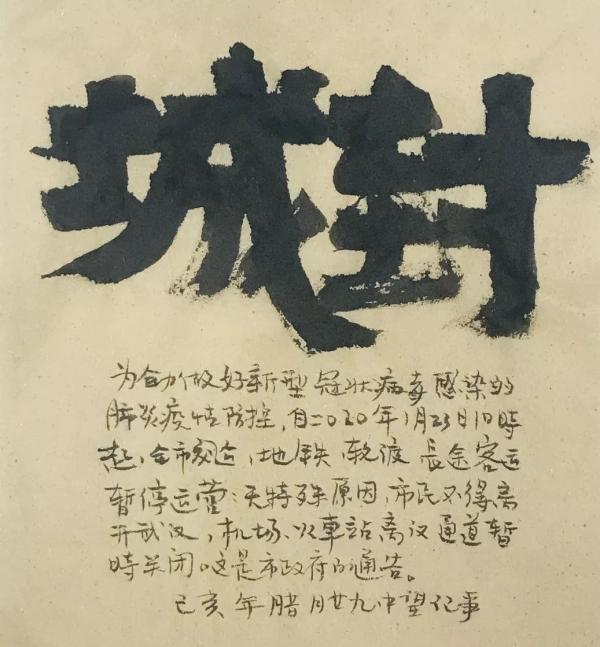 封城
为全力做好新型冠状病毒感染的
肺炎疫情防控,自二020年1月23日10時
起,全市公交,地铁,轮渡 長途客运
暫停运营;无特殊原因,市民不得离
开武汉,机场、火車站离汉通道暫
時关闭。这是市政府的通告。
己亥年腊月廿九中望纪事